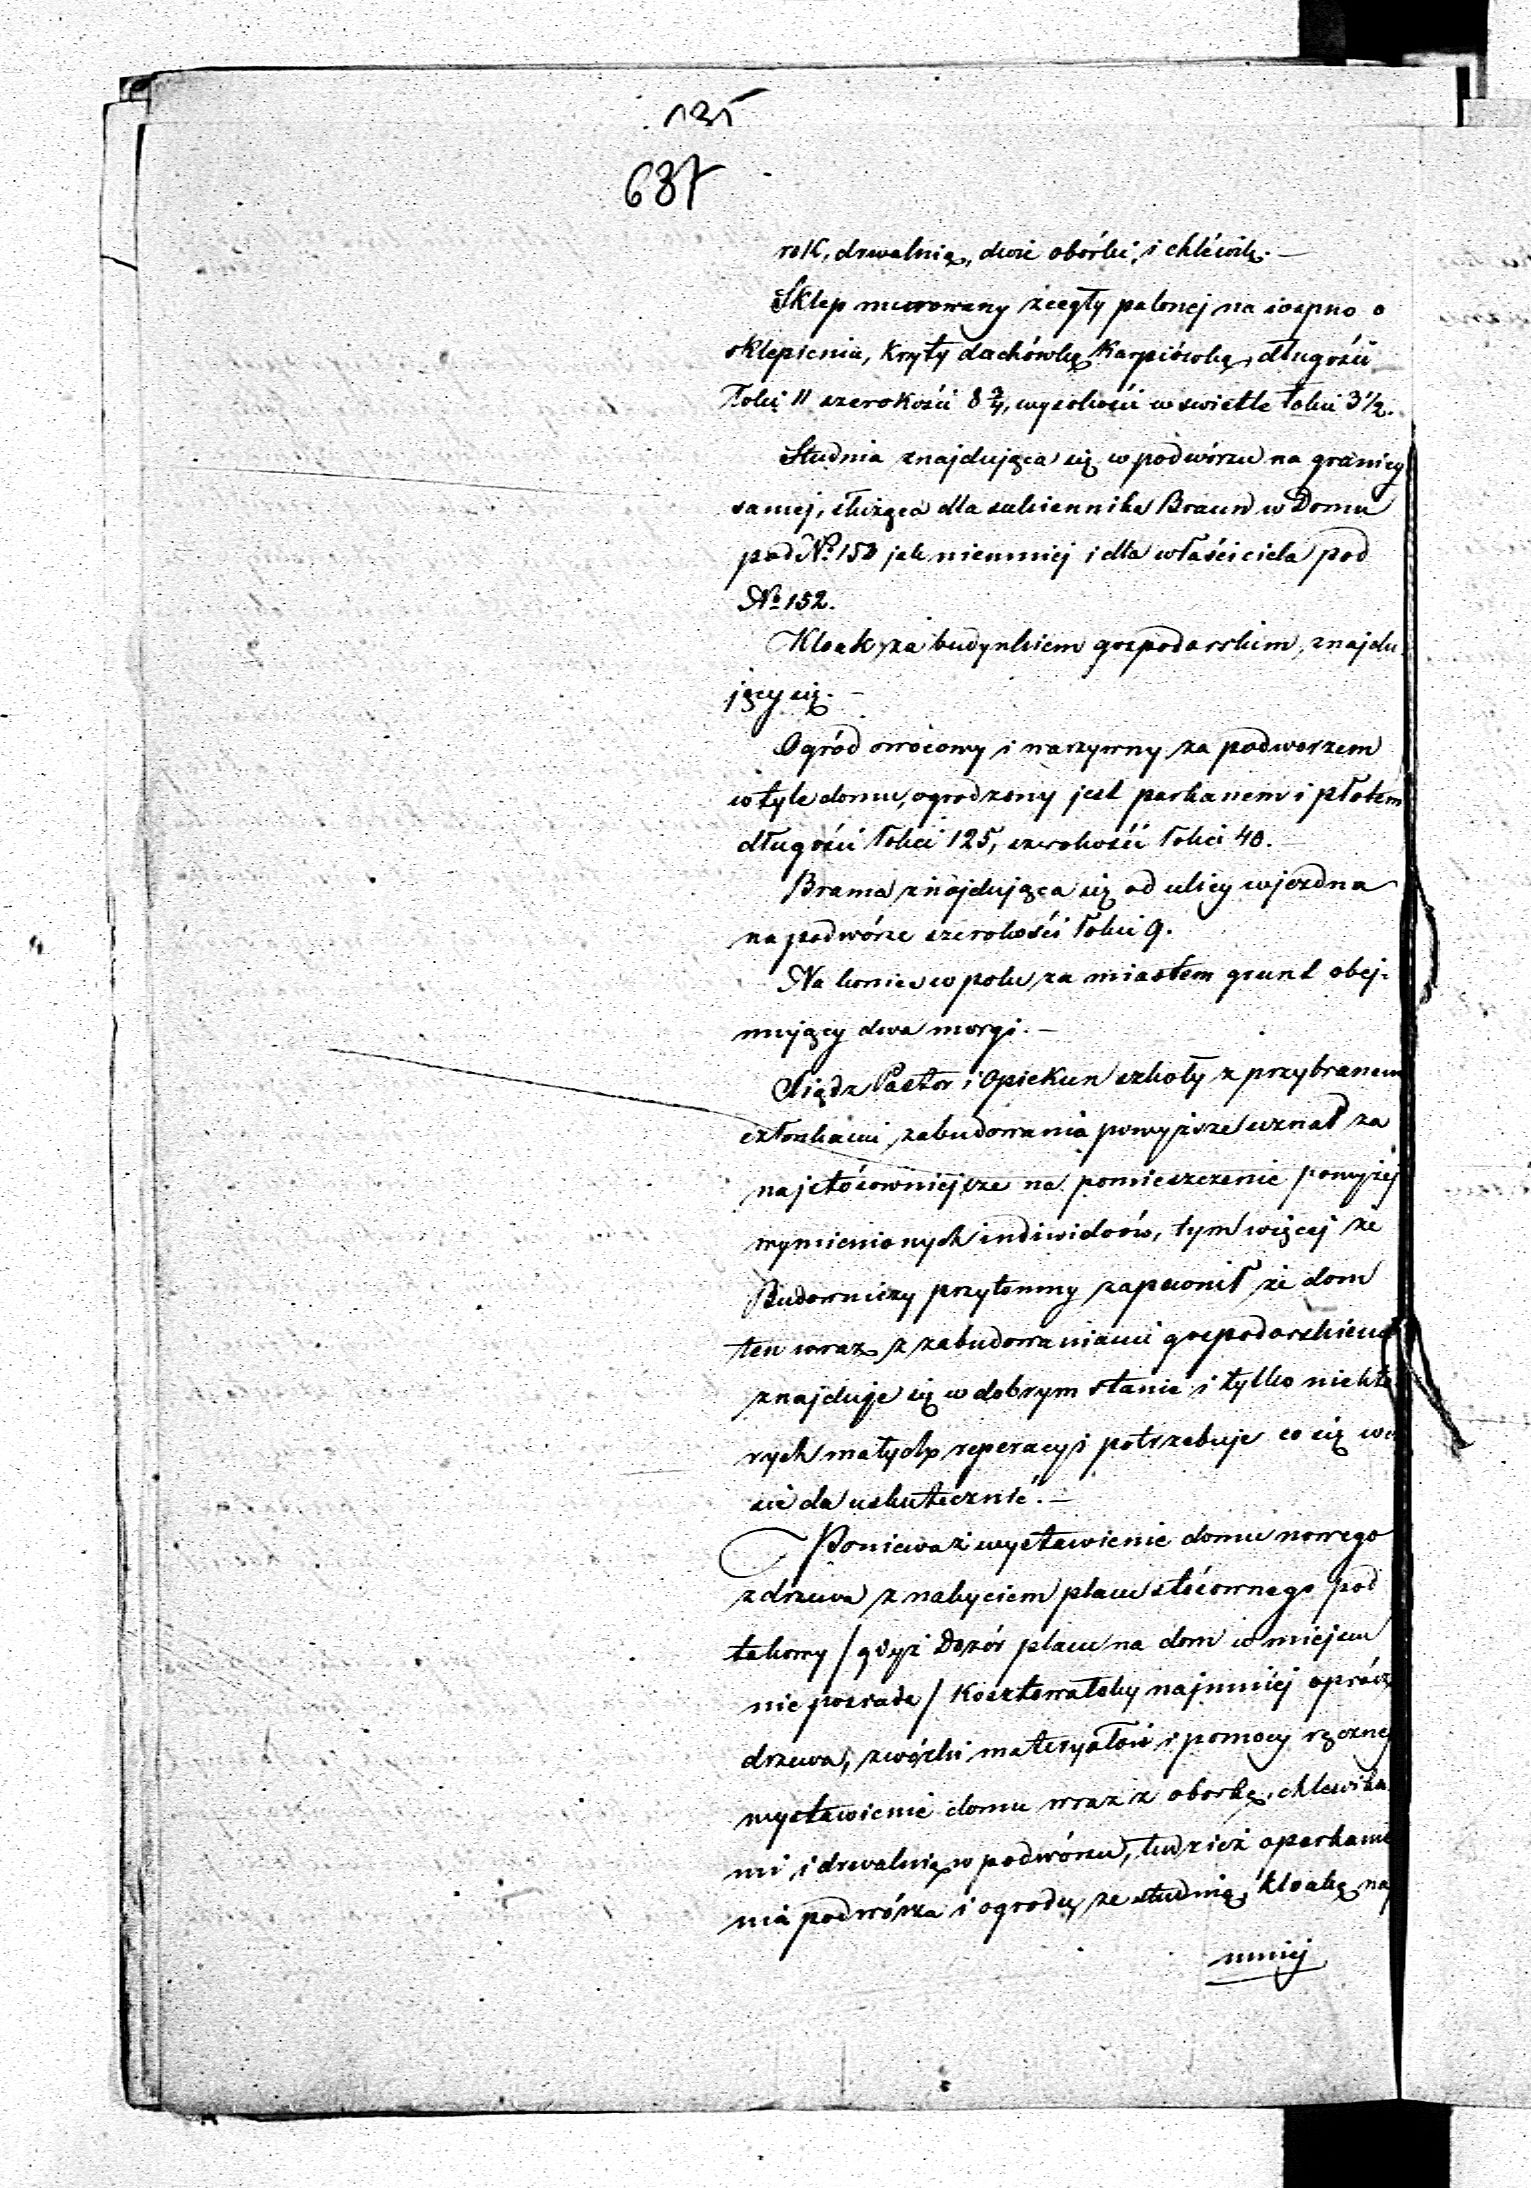 135
637
rek, drwalnią, dwie obórki, i chléwik. —
Sklep murowany z cegły palonej na wapno o
sklepieniu, kryty dachówką karpiówką, długości
łokci 11 szerokości 8 3/4, wysokości w swietle łokci 3 1/2.
Studnia znajdująca się w podwórzu na granicy
samej, służąca dla sukiennika Braun w Domu
pod No. 153 jak niemniej i dla właściciela pod
No 152.
Kloak za budynkiem gospodarskim, znajdu-
jący się. —
Ogród owocowy i warzywny za podworzem
w tyle domu, ogrodzony jest parkanem i płotem
długości łokci 125, szerokości łokci 40. —
Brama znajdująca się od ulicy wjezdna
na podwórze szerokości łokci 9.
Na koniec w polu za miastem grunt obej-
mujący dwa morgi. —
Xiądz Pastor i Opiekun szkoły z przybranemi
członkami, zabudowania powyższe uznał za
najstósowniejsze na pomieszczenie powyżej
wymienionych indiwiduów, tym więcej że
Budowniczy przytomny zapewnił, że dom
ten wraz z zabudowaniami gospodarskiemi
znajduje się w dobrym stanie i tylko niektó
rych małych reperacyi potrzebuje co się
da uskutecznić. —
Ponieważ wystawienie domu nowego
z drzewa z nabyciem placu stósownego pod
takowy / gdyż Dozór placu na dom w miejscu
nie posiada / kosztowałoby najmniej oprócz
drzewa, zwózki materyałów i pomocy ręcznej
wystawienie domu wraz z oborką, chlewika
mi i drwalnią w podwórzu, tudzież oparkanie
nia podwórza i ogrodu, ze studnią, kloaką naj
mniej